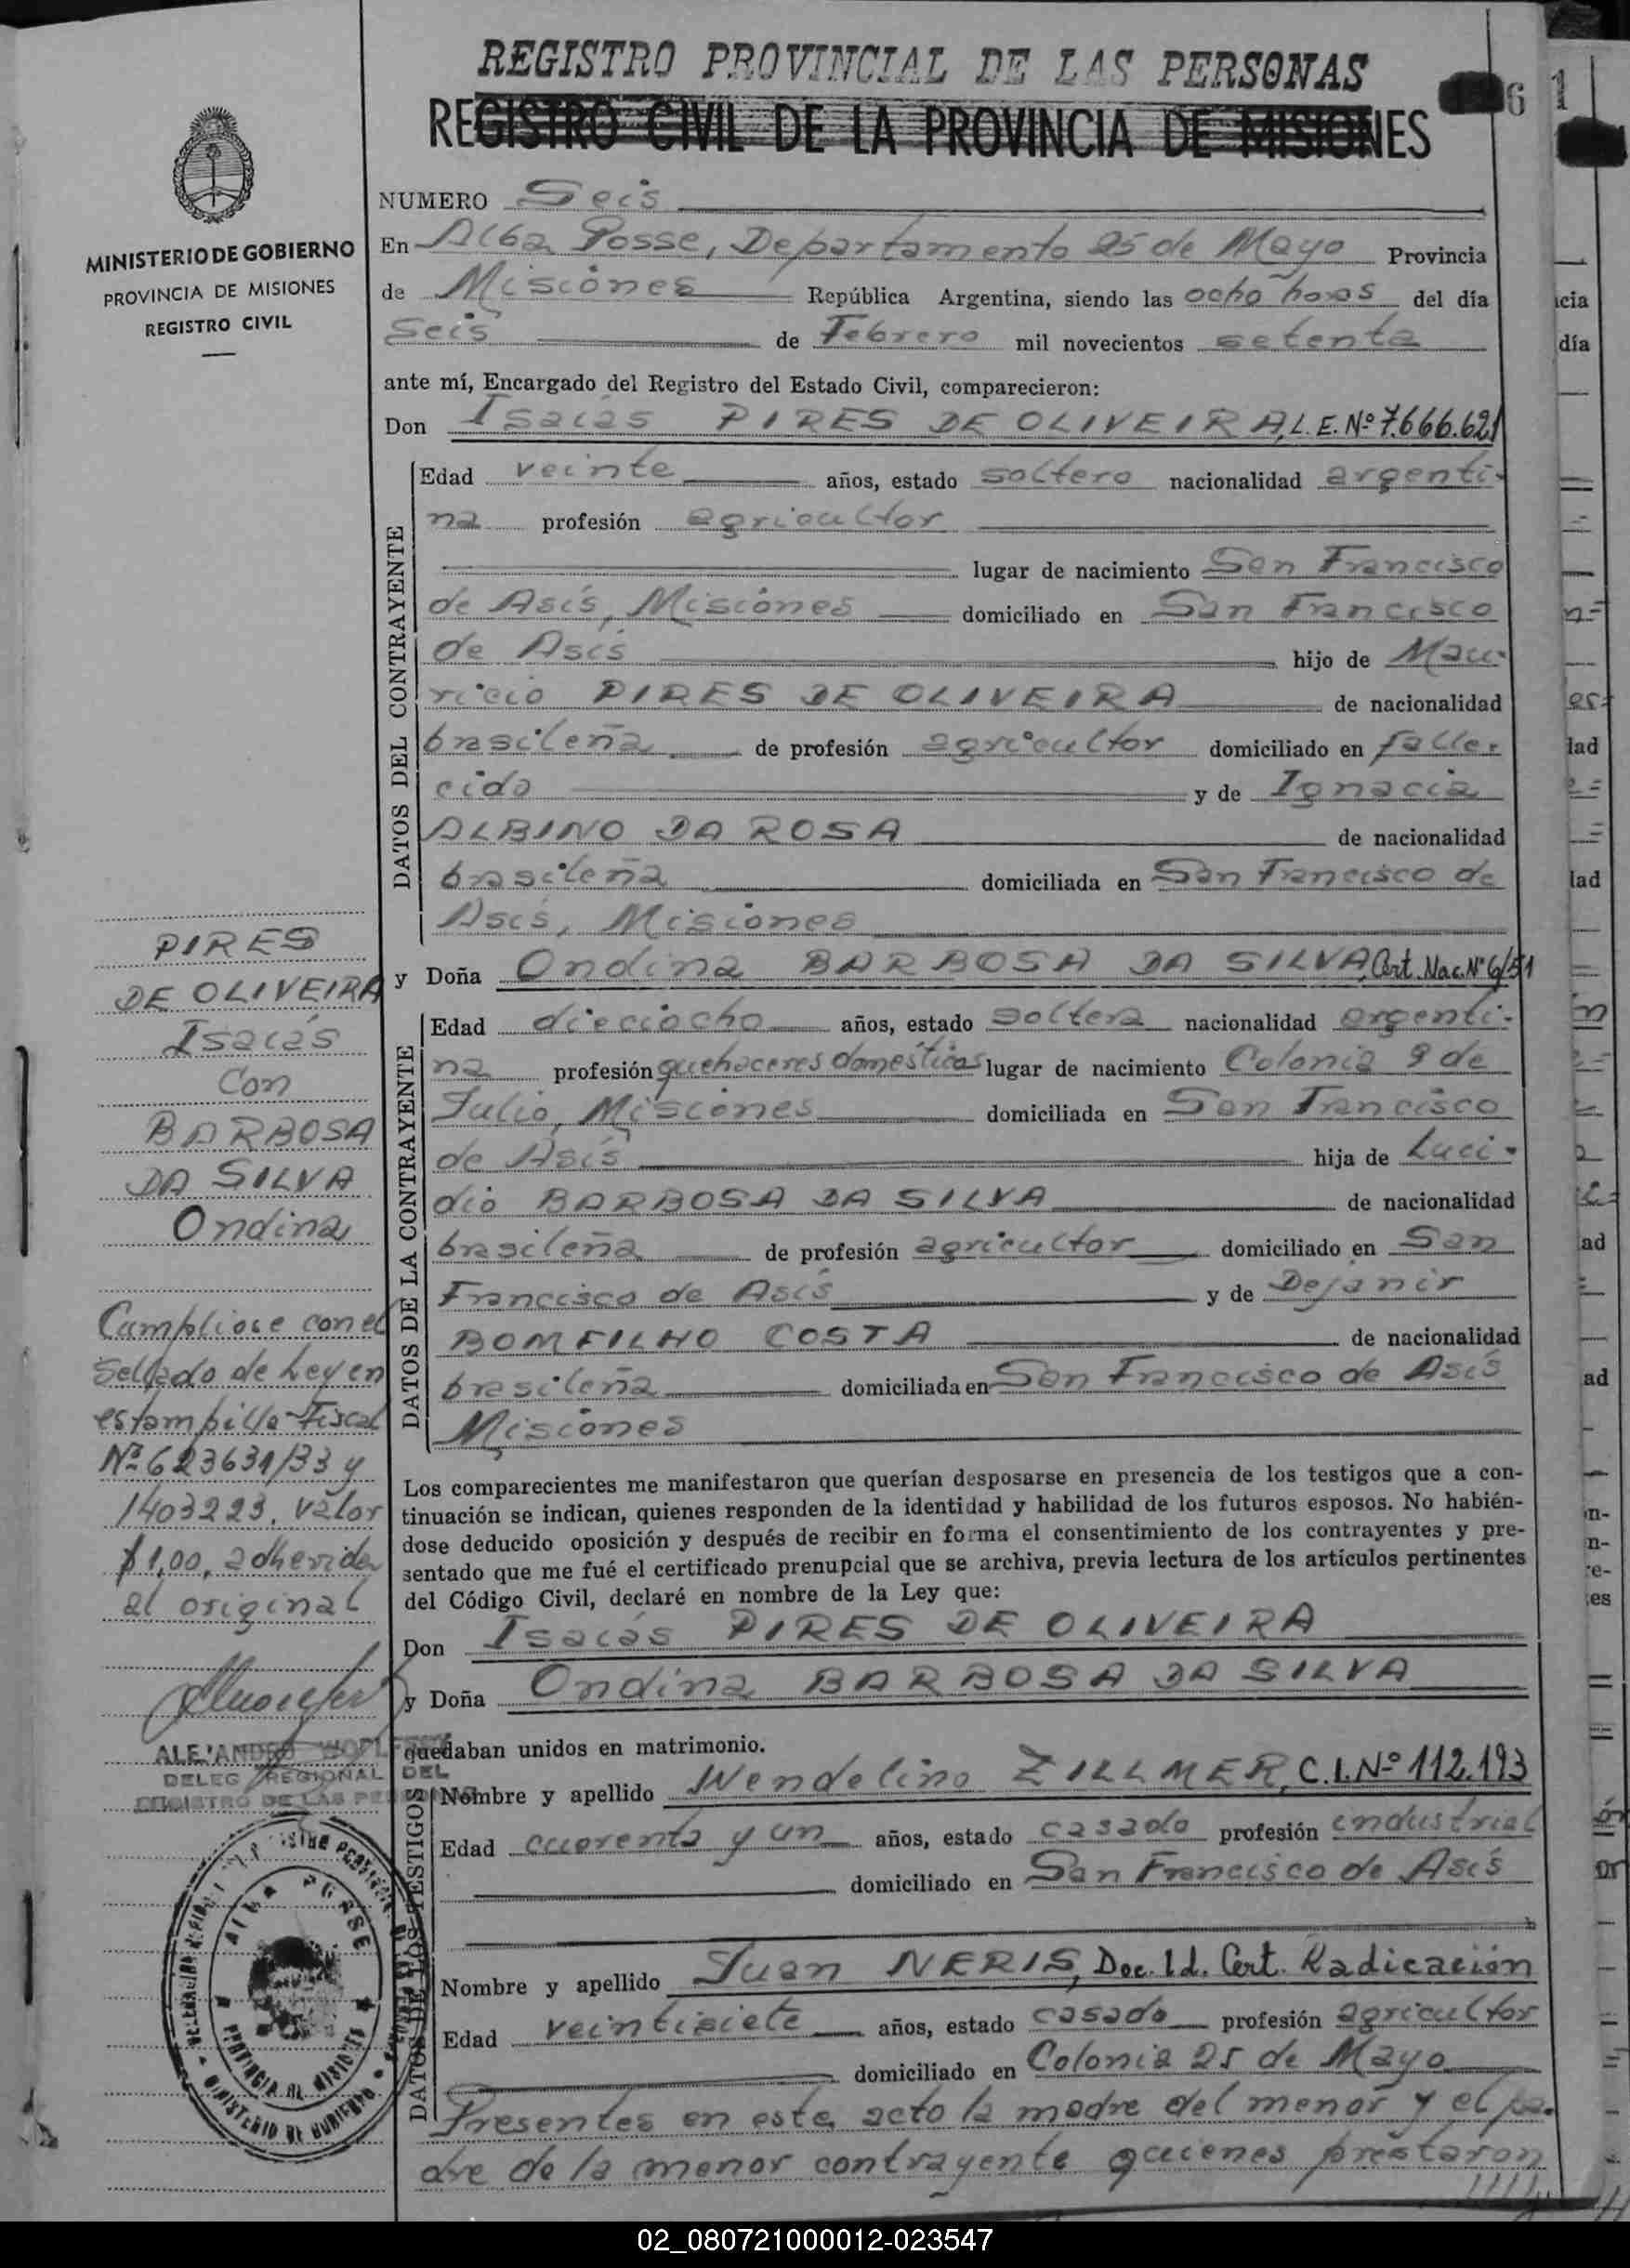 REGISTRO PROVINCIAL DE LAS PERSONAS
REGISTRO CIVIL DE LA PROVINCIA DE MISIONES
6
1
MINISTERIO DE GOBIERNO
PROVINCIA DE MISIONES
REGISTRO CIVIL
NUMERO Seis
En Alba Posse, Departamento 25 de Mayo Provincia
de Misiones República Argentina, siendo las ocho horas del día
Seis de Febrero mil novecientos setenta
ante mí, Encargado del Registro del Estado Civil, comparecieron:
Don Isaías PIRES DE OLIVEIRA, L.E. Nº 7.666.621
DATOS DEL CONTRAYENTE
Edad veinte años, estado soltero nacionalidad argenti-
na profesión agricultor
lugar de nacimiento San Francisco
de Asís, Misiones domiciliado en San Francisco
de Asís hijo de Mau-
ricio PIRES DE OLIVEIRA de nacionalidad
brasileña de profesión agricultor domiciliado en falle-
cido y de Ignacia
ALBINO DA ROSA de nacionalidad
brasileña domiciliada en San Francisco de
Asís, Misiones
y Doña Ondina BARBOSA DA SILVA, Cert. Nac. Nº 6/51
DATOS DE LA CONTRAYENTE
Edad dieciocho años, estado soltera nacionalidad argenti-
na profesión quehaceres domésticos lugar de nacimiento Colonia 9 de
Julio, Misiones domiciliada en San Francisco
de Asís hija de Luci-
dio BARBOSA DA SILVA de nacionalidad
brasileña de profesión agricultor domiciliado en San
Francisco de Asís y de Dejanir
BOMFILHO COSTA de nacionalidad
brasileña domiciliada en San Francisco de Asís
Misiones
Los comparecientes me manifestaron que querían desposarse en presencia de los testigos que a con-
tinuación se indican, quienes responden de la identidad y habilidad de los futuros esposos. No habién-
dose deducido oposición y después de recibir en forma el consentimiento de los contrayentes y pre-
sentado que me fué el certificado prenupcial que se archiva, previa lectura de los artículos pertinentes
del Código Civil, declaré en nombre de la Ley que:
Don Isaías PIRES DE OLIVEIRA
y Doña Ondina BARBOSA DA SILVA
quedaban unidos en matrimonio.
DATOS DE LOS TESTIGOS
Nombre y apellido Wendelino ZILLMER, C.I. Nº 112.193
Edad cuarenta y un años, estado casado profesión industrial
domiciliado en San Francisco de Asís
Nombre y apellido Juan NERIS, Doc. Id. Cert. Radicación
Edad veintisiete años, estado casado profesión agricultor
domiciliado en Colonia 25 de Mayo
Presentes en este acto la madre del menor y el pa-
dre de la menor contrayente quienes prestaron
PIRES
DE OLIVEIRA
Isaías
Con
BARBOSA
DA SILVA
Ondina
Cumpliose con el
Sellado de Ley en
estampilla Fiscal
Nº 623631/33 y
1403223, valor
$1,00, adherida
al original
DELEG REGIONAL DEL
REGISTRO DE LAS PERSONAS
ALBA POSSE
PROVINCIA DE MISIONES
MINISTERIO DE GOBIERNO
02_080721000012-023547